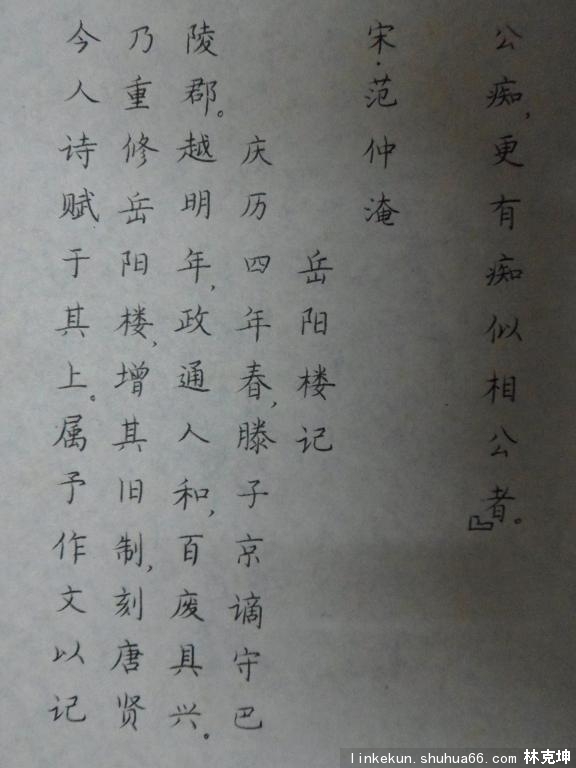 公痴，更有痴似相公者。』
宋·范仲淹
岳阳楼记
庆历四年春，滕子京谪守巴
陵郡。越明年，政通人和，百废具兴。
乃重修岳阳楼，增其旧制，刻唐贤
今人诗赋于其上。属予作文以记
linkekun.shuhua66.com 林克坤